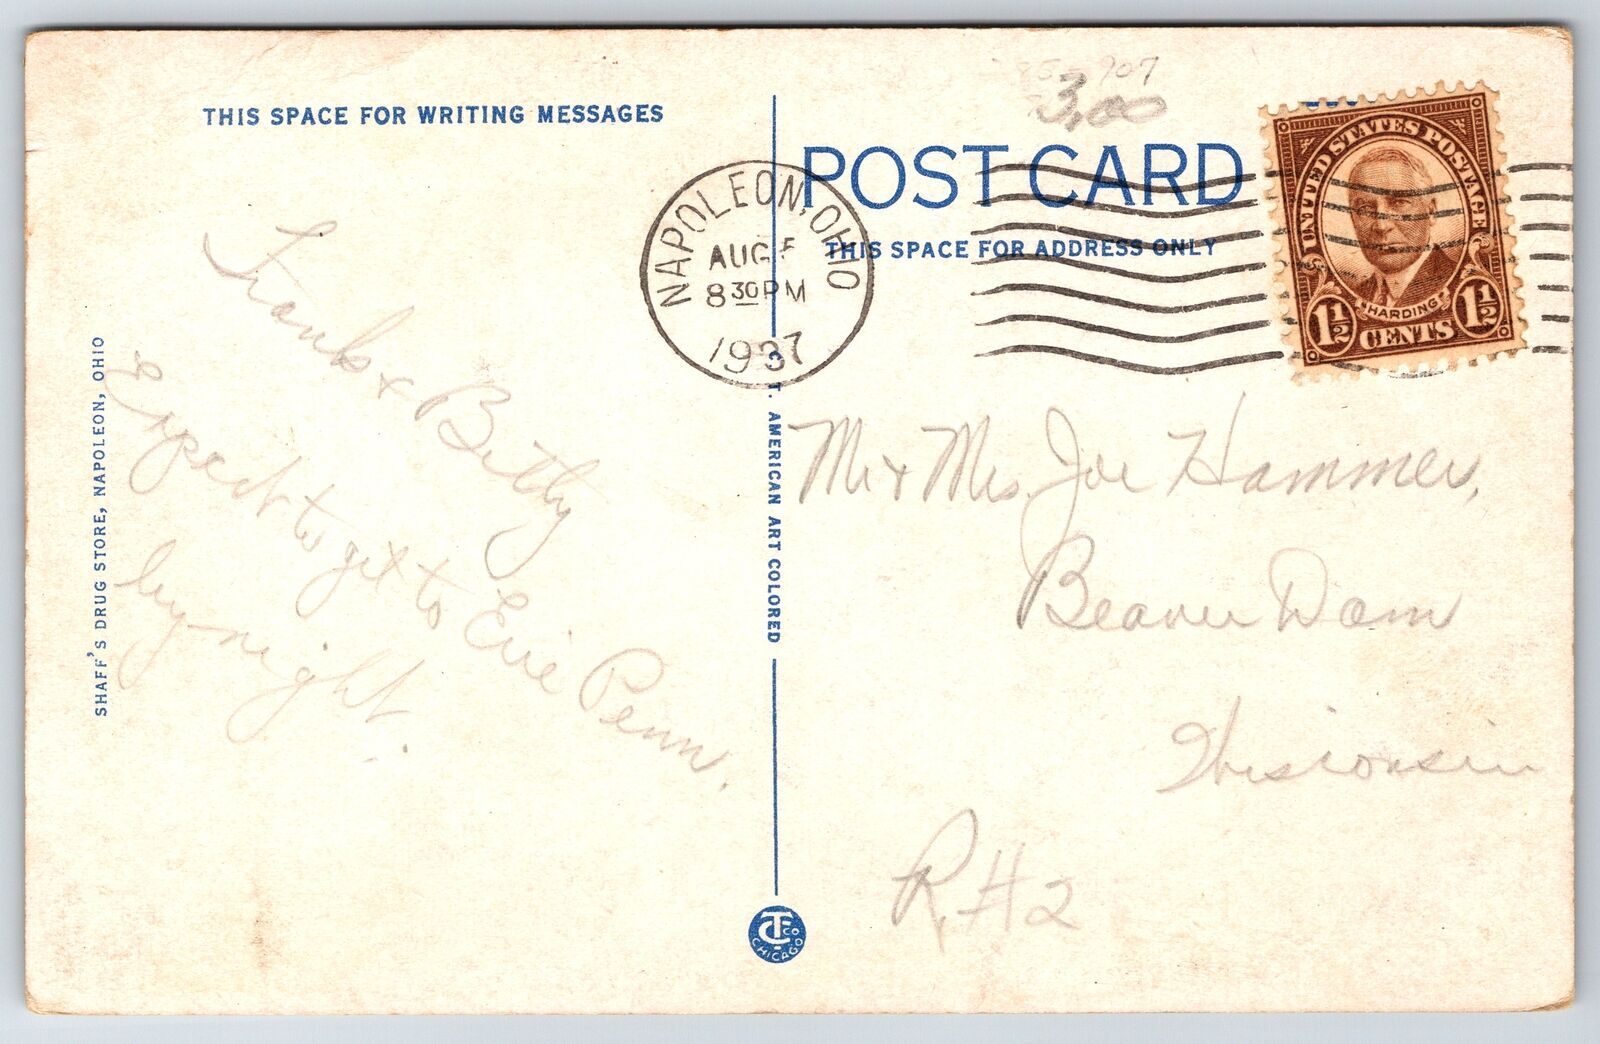 THIS SPACE FOR WRITING MESSAGES
Frank & Betty
Expect to get to Erie Penn.
by night.
SHAFF'S DRUG STORE, NAPOLEON, OHIO
C. T. AMERICAN ART COLORED
CT CO CHICAGO
907
3.00
POST CARD
THIS SPACE FOR ADDRESS ONLY
NAPOLEON, OHIO
AUG 5
8 30 PM
1937
UNITED STATES POSTAGE
HARDING
1½ CENTS 1½
Mr & Mrs. Joe Hammer,
Beaver Dam
Wisconsin
R.#2